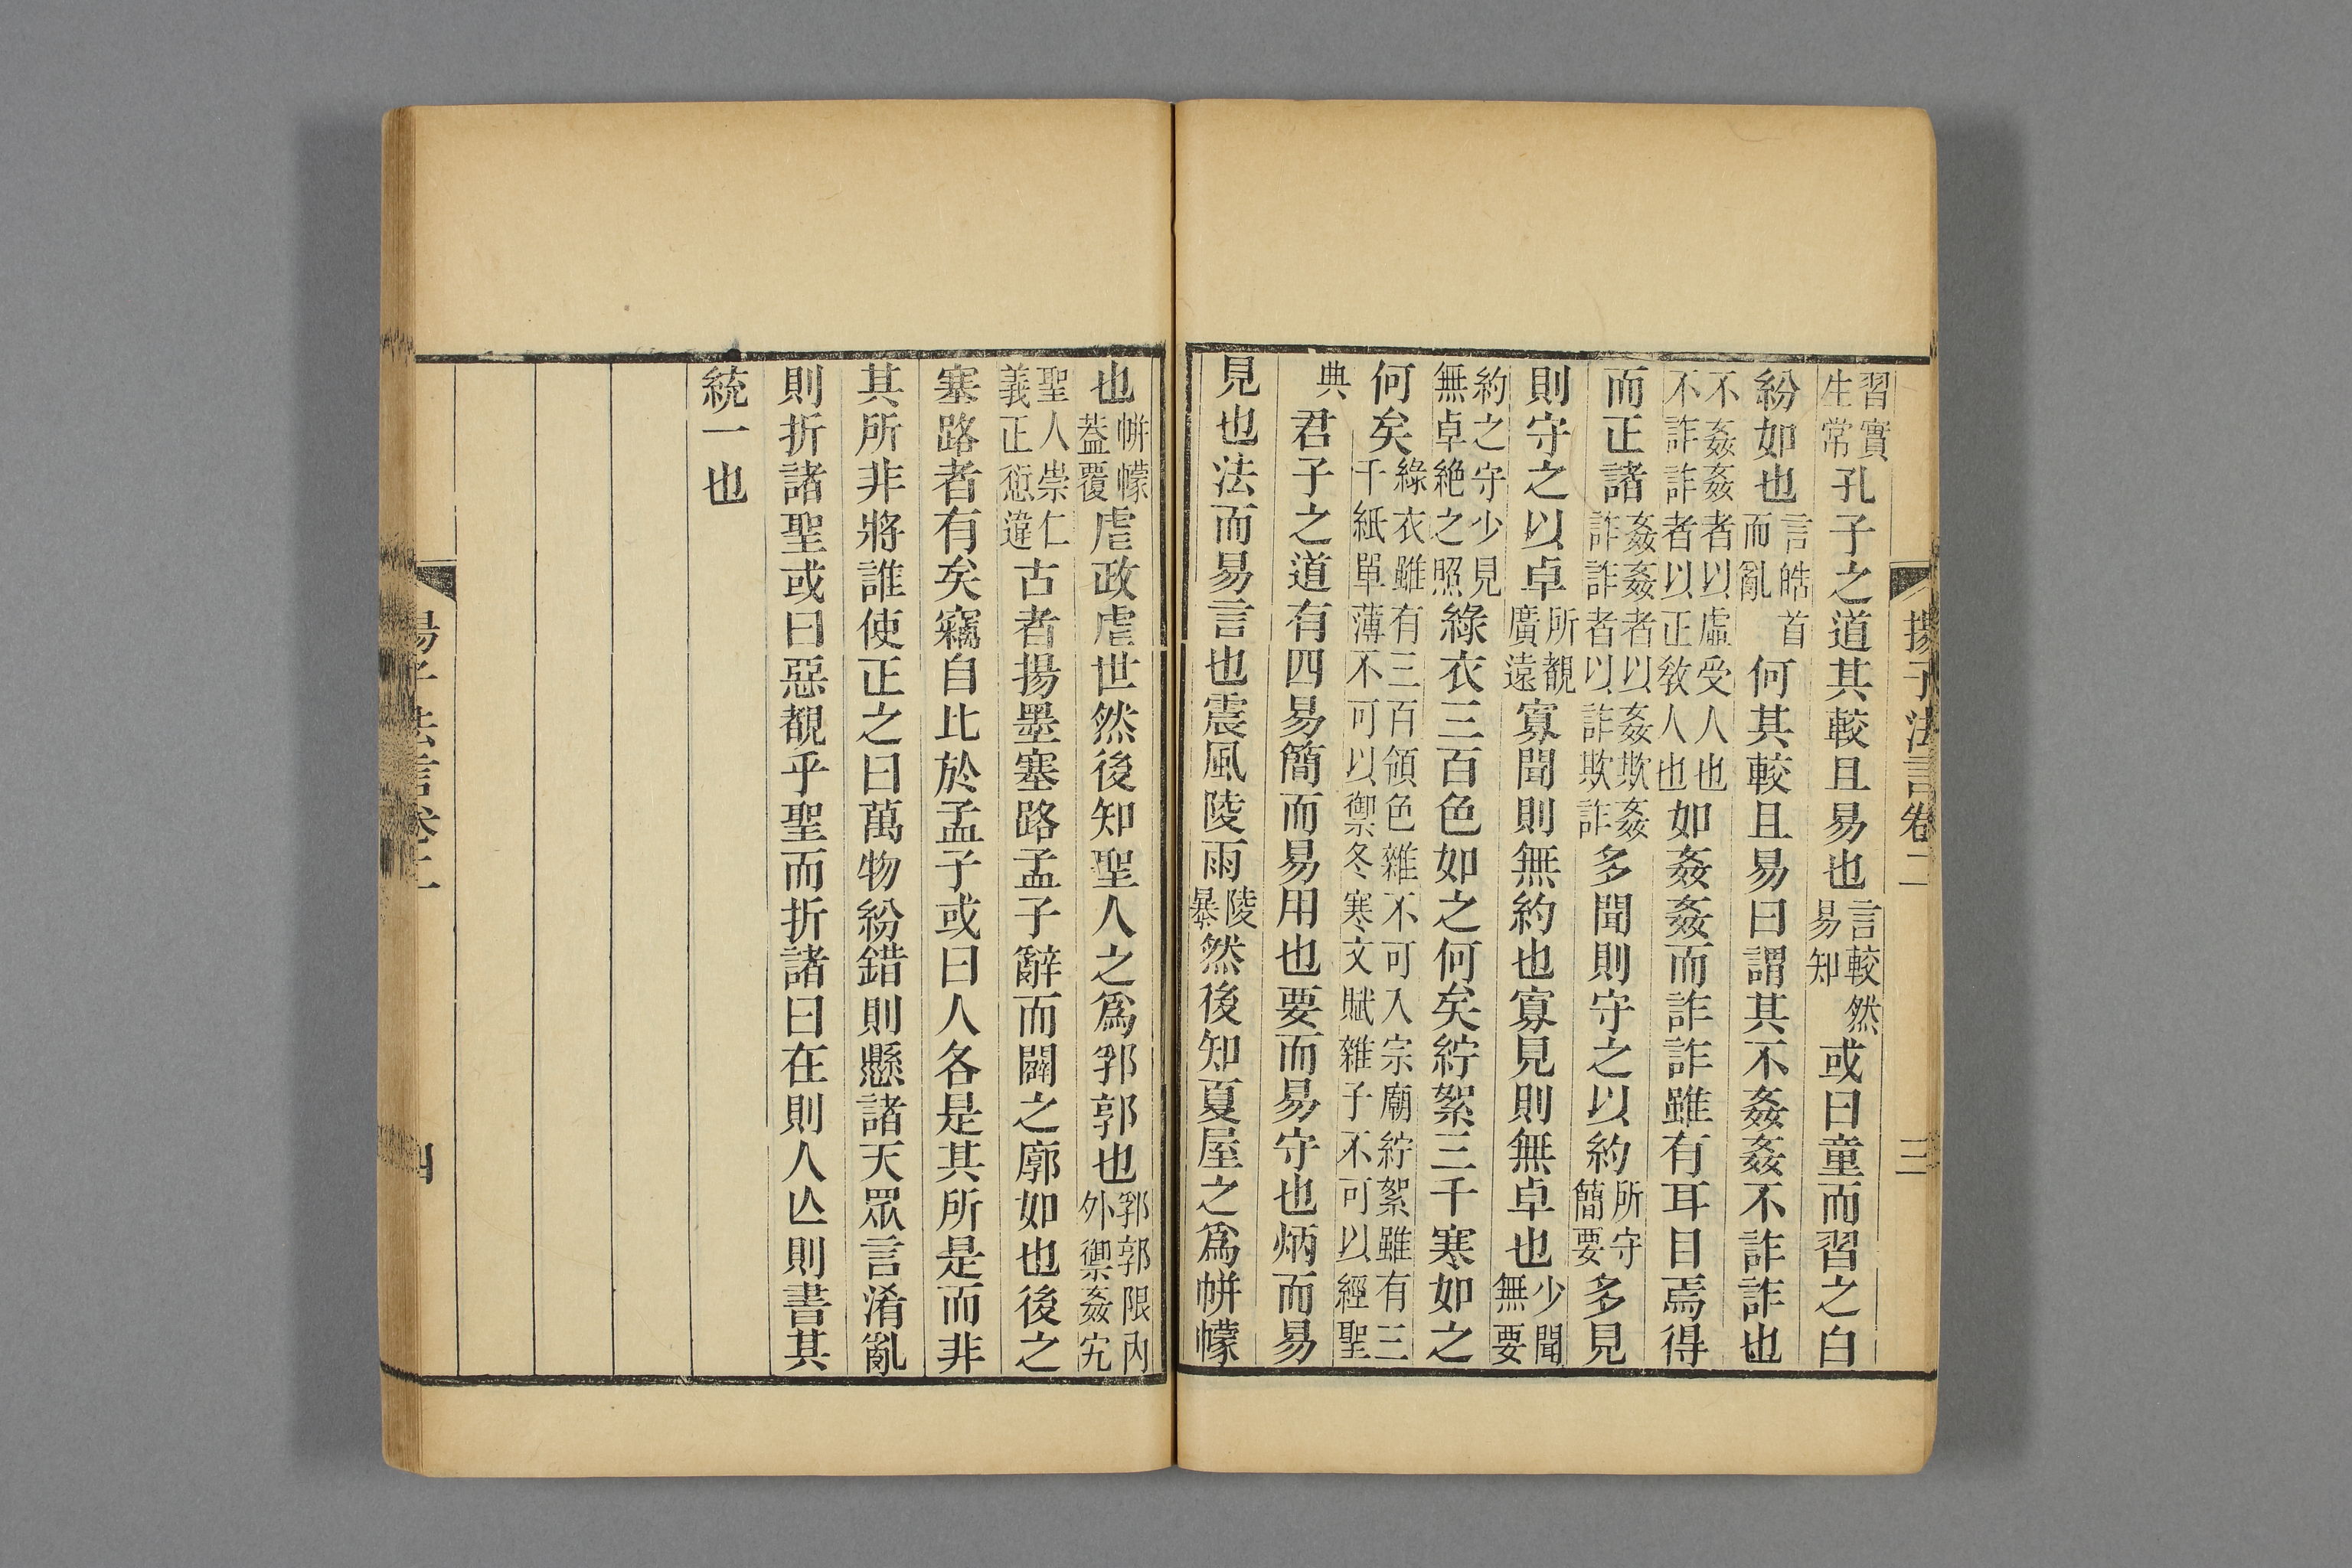 揚子法言卷二　三
習實生常孔子之道其較且易也言較然易知或曰童而習之白
紛如也言皓首而亂何其較且易曰謂其不姦姦不詐詐也
不姦姦者以虛受人也不詐詐者以正敎人也如姦姦而詐詐雖有耳目焉得
而正諸姦姦者以姦欺姦詐詐者以詐欺詐多聞則守之以約所守簡要多見
則守之以卓所覩廣遠寡聞則無約也寡見則無卓也少聞無要
約之守少見無卓絶之照綠衣三百色如之何矣紵絮三千寒如之
何矣綠衣雖有三百領色雜不可入宗廟紵絮雖有三千紙單薄不可以禦冬寒文賦雜子不可以經聖
典君子之道有四易簡而易用也要而易守也炳而易
見也法而易言也震風陵雨陵暴然後知夏屋之爲帡幪
也帡幪蓋覆虐政虐世然後知聖人之爲郛郭也郛郭限內外禦姦宄
聖人崇仁義正愆違古者揚墨塞路孟子辭而闢之廓如也後之
塞路者有矣竊自比於孟子或曰人各是其所是而非
其所非將誰使正之曰萬物紛錯則懸諸天眾言淆亂
則折諸聖或曰惡覩乎聖而折諸曰在則人亾則書其
統一也
揚子法言卷二　四